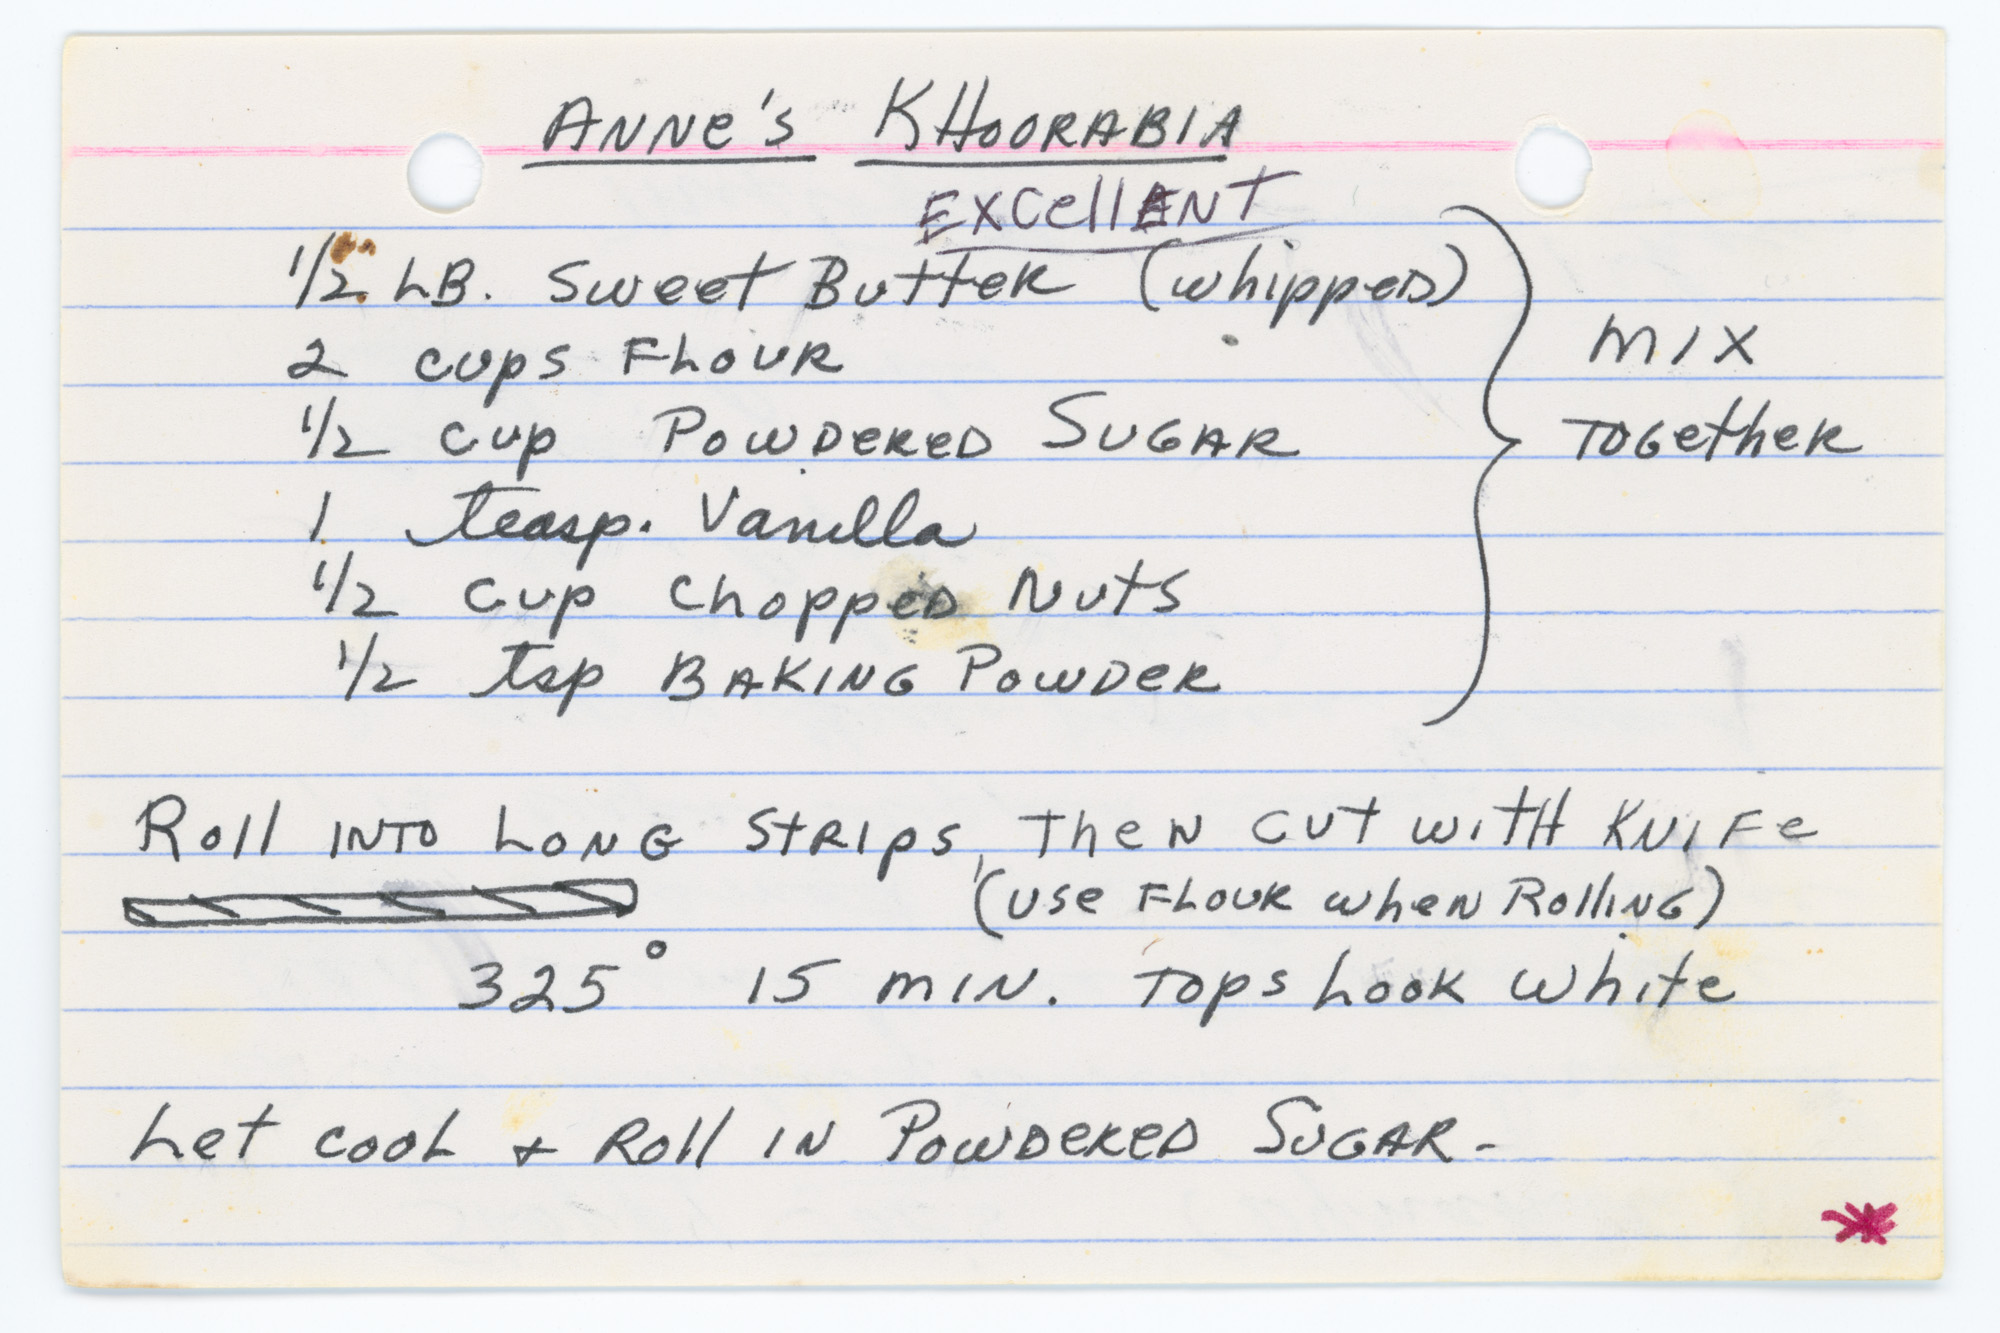 Anne's Khoorabia
Excellent
1/2 LB. Sweet Butter (whipped)
2 cups Flour
1/2 cup Powdered Sugar
1 teasp. Vanilla
1/2 cup chopped Nuts
1/2 tsp Baking Powder
mix
together
Roll into Long strips, then cut with knife
(use Flour when Rolling)
325° 15 min. Tops Look white
Let cool + Roll in Powdered Sugar-